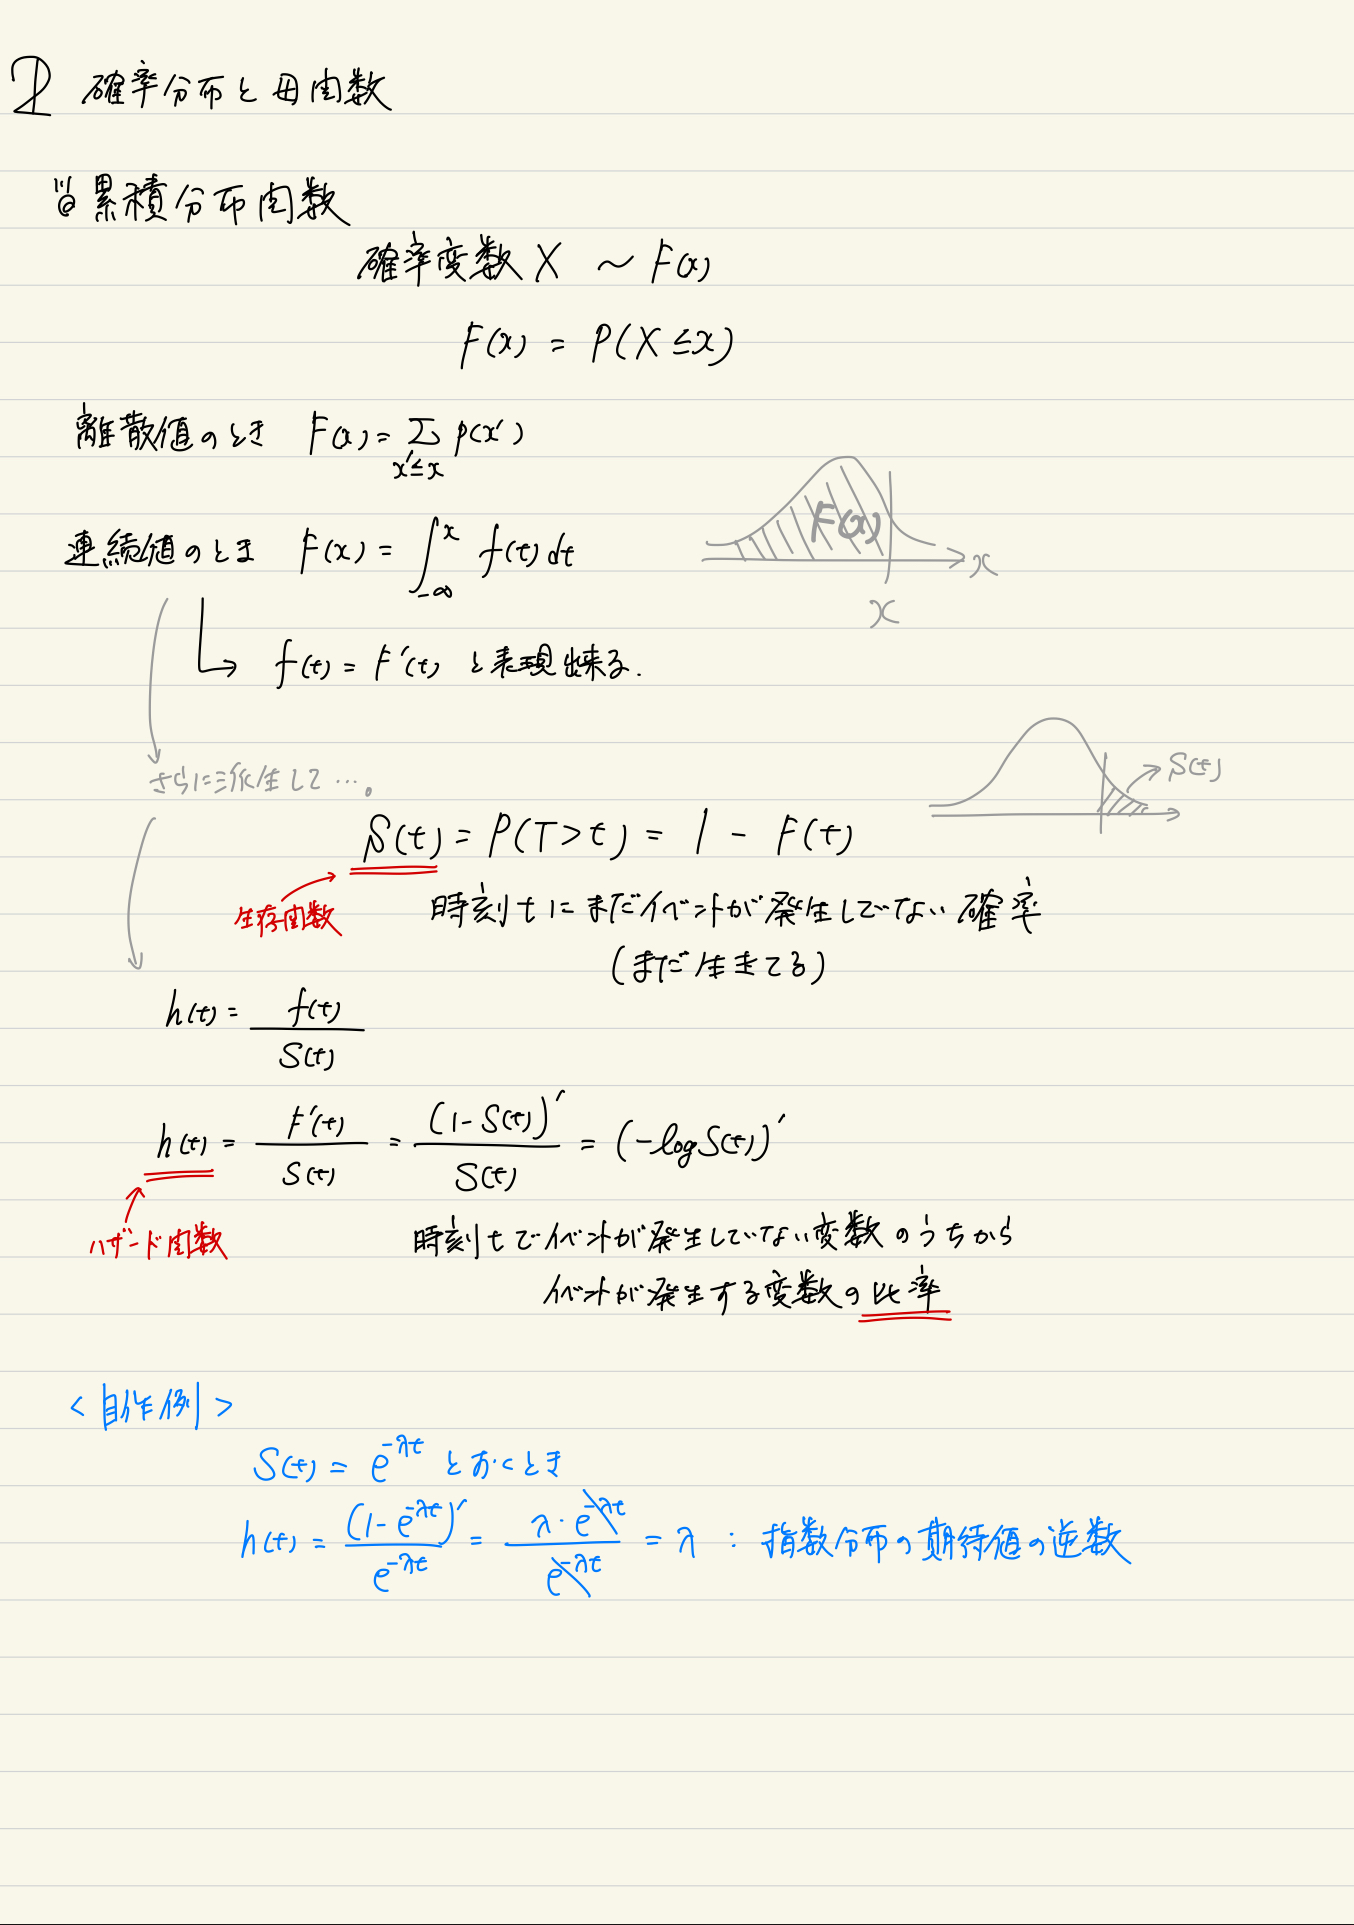 2 確率分布と母関数
累積分布関数
確率変数X ~ F(x)
F(x) = P(X ≤ x)
離散値のとき F(x) = Σ p(x')
x'≤x
F(x)
x
x
連続値のとき F(x) = ∫_{-∞}^{x} f(t) dt
f(t) = F'(t) と表現出来る.
さらに派生して….
S(t)
S(t) = P(T>t) = 1 - F(t)
生存関数
時刻tにまだイベントが発生してない確率
(まだ生きてる)
h(t) = f(t) / S(t)
h(t) = F'(t) / S(t) = (1-S(t))' / S(t) = (-log S(t))'
ハザード関数
時刻tでイベントが発生していない変数のうちから
イベントが発生する変数の比率
<自作例>
S(t) = e^{-λt} とおくとき
h(t) = (1-e^{-λt})' / e^{-λt} = λ・e^{-λt} / e^{-λt} = λ : 指数分布の期待値の逆数